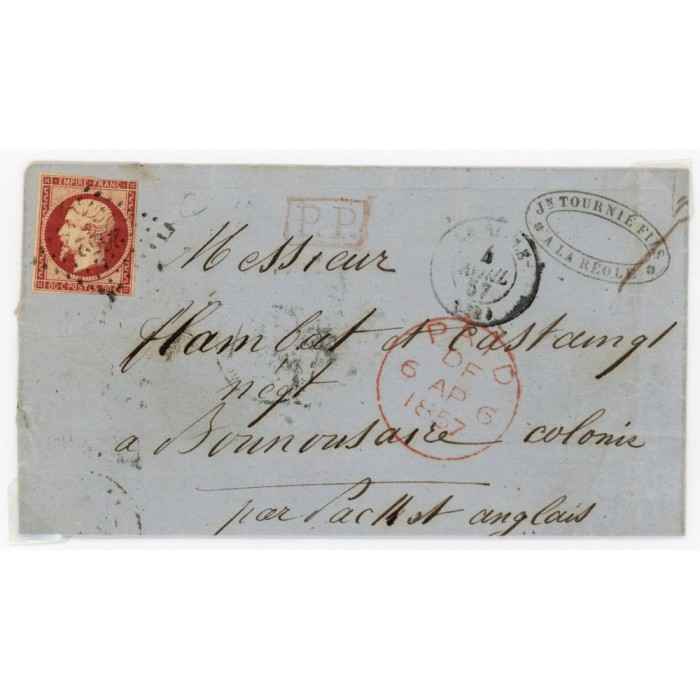 EMPIRE FRANC
80 C POSTES 80 C
P.P.
JN TOURNIÉ FILS
A LA RÉOLE
4
AVRIL
57
Messieur
Flambat et Castaingt
négt
PAID
DF
6 AP 6
1857
a Bounousaire colonie
par Packet anglais